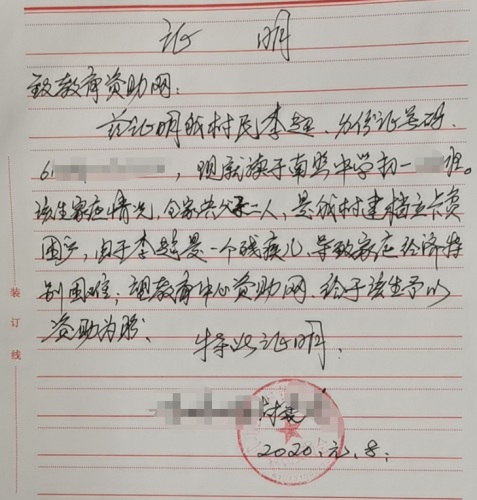 证 明
致教育资助网：
兹证明我村民李超、身份证号码、
6，现就读于南照中学初一班。
该生家庭情况，全家共父子二人，是我村建档立卡贫
困户，由于李超是一个残疾儿、导致家庭经济特
别困难；望教育中心资助网、给于该生予以
资助为盼、
特此证明．
村委
2020.元.8.
装订线